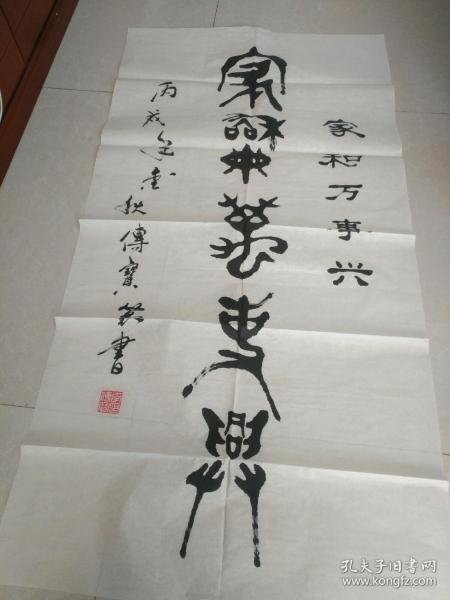 家和万事兴
家和萬事興
丙戌年金秋傳寶敬書
孔夫子旧书网
www.kongfz.com